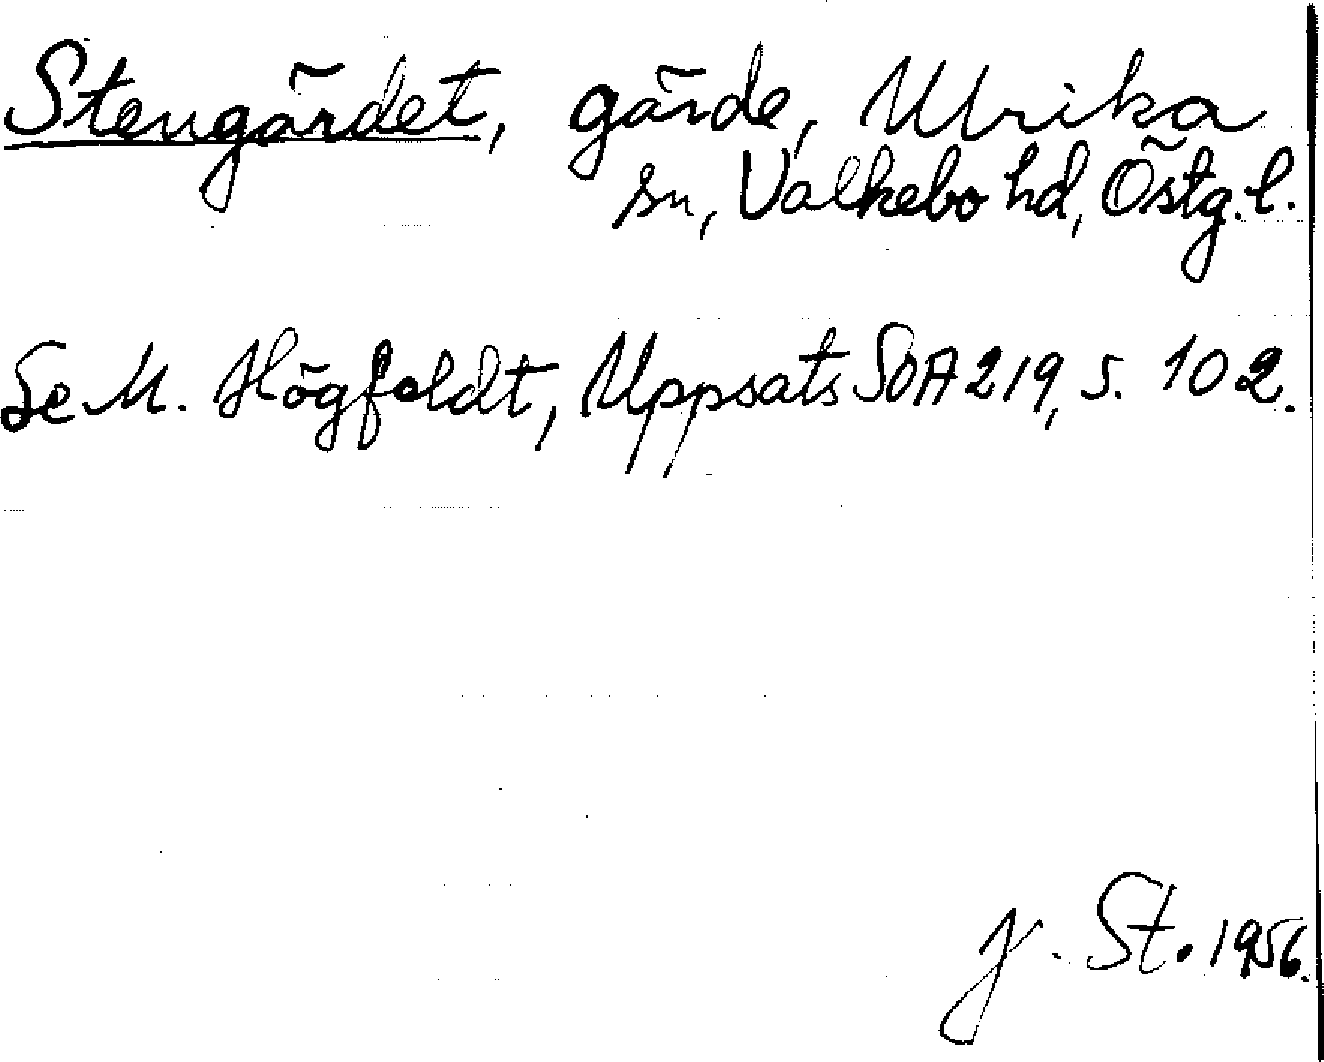 Stengärdet, gärde, Ulrika
sn, Valkebo hd, Östg. l.
Se M. Högfeldt, Uppsats SOA 219, s. 102.
J. St. 1956.